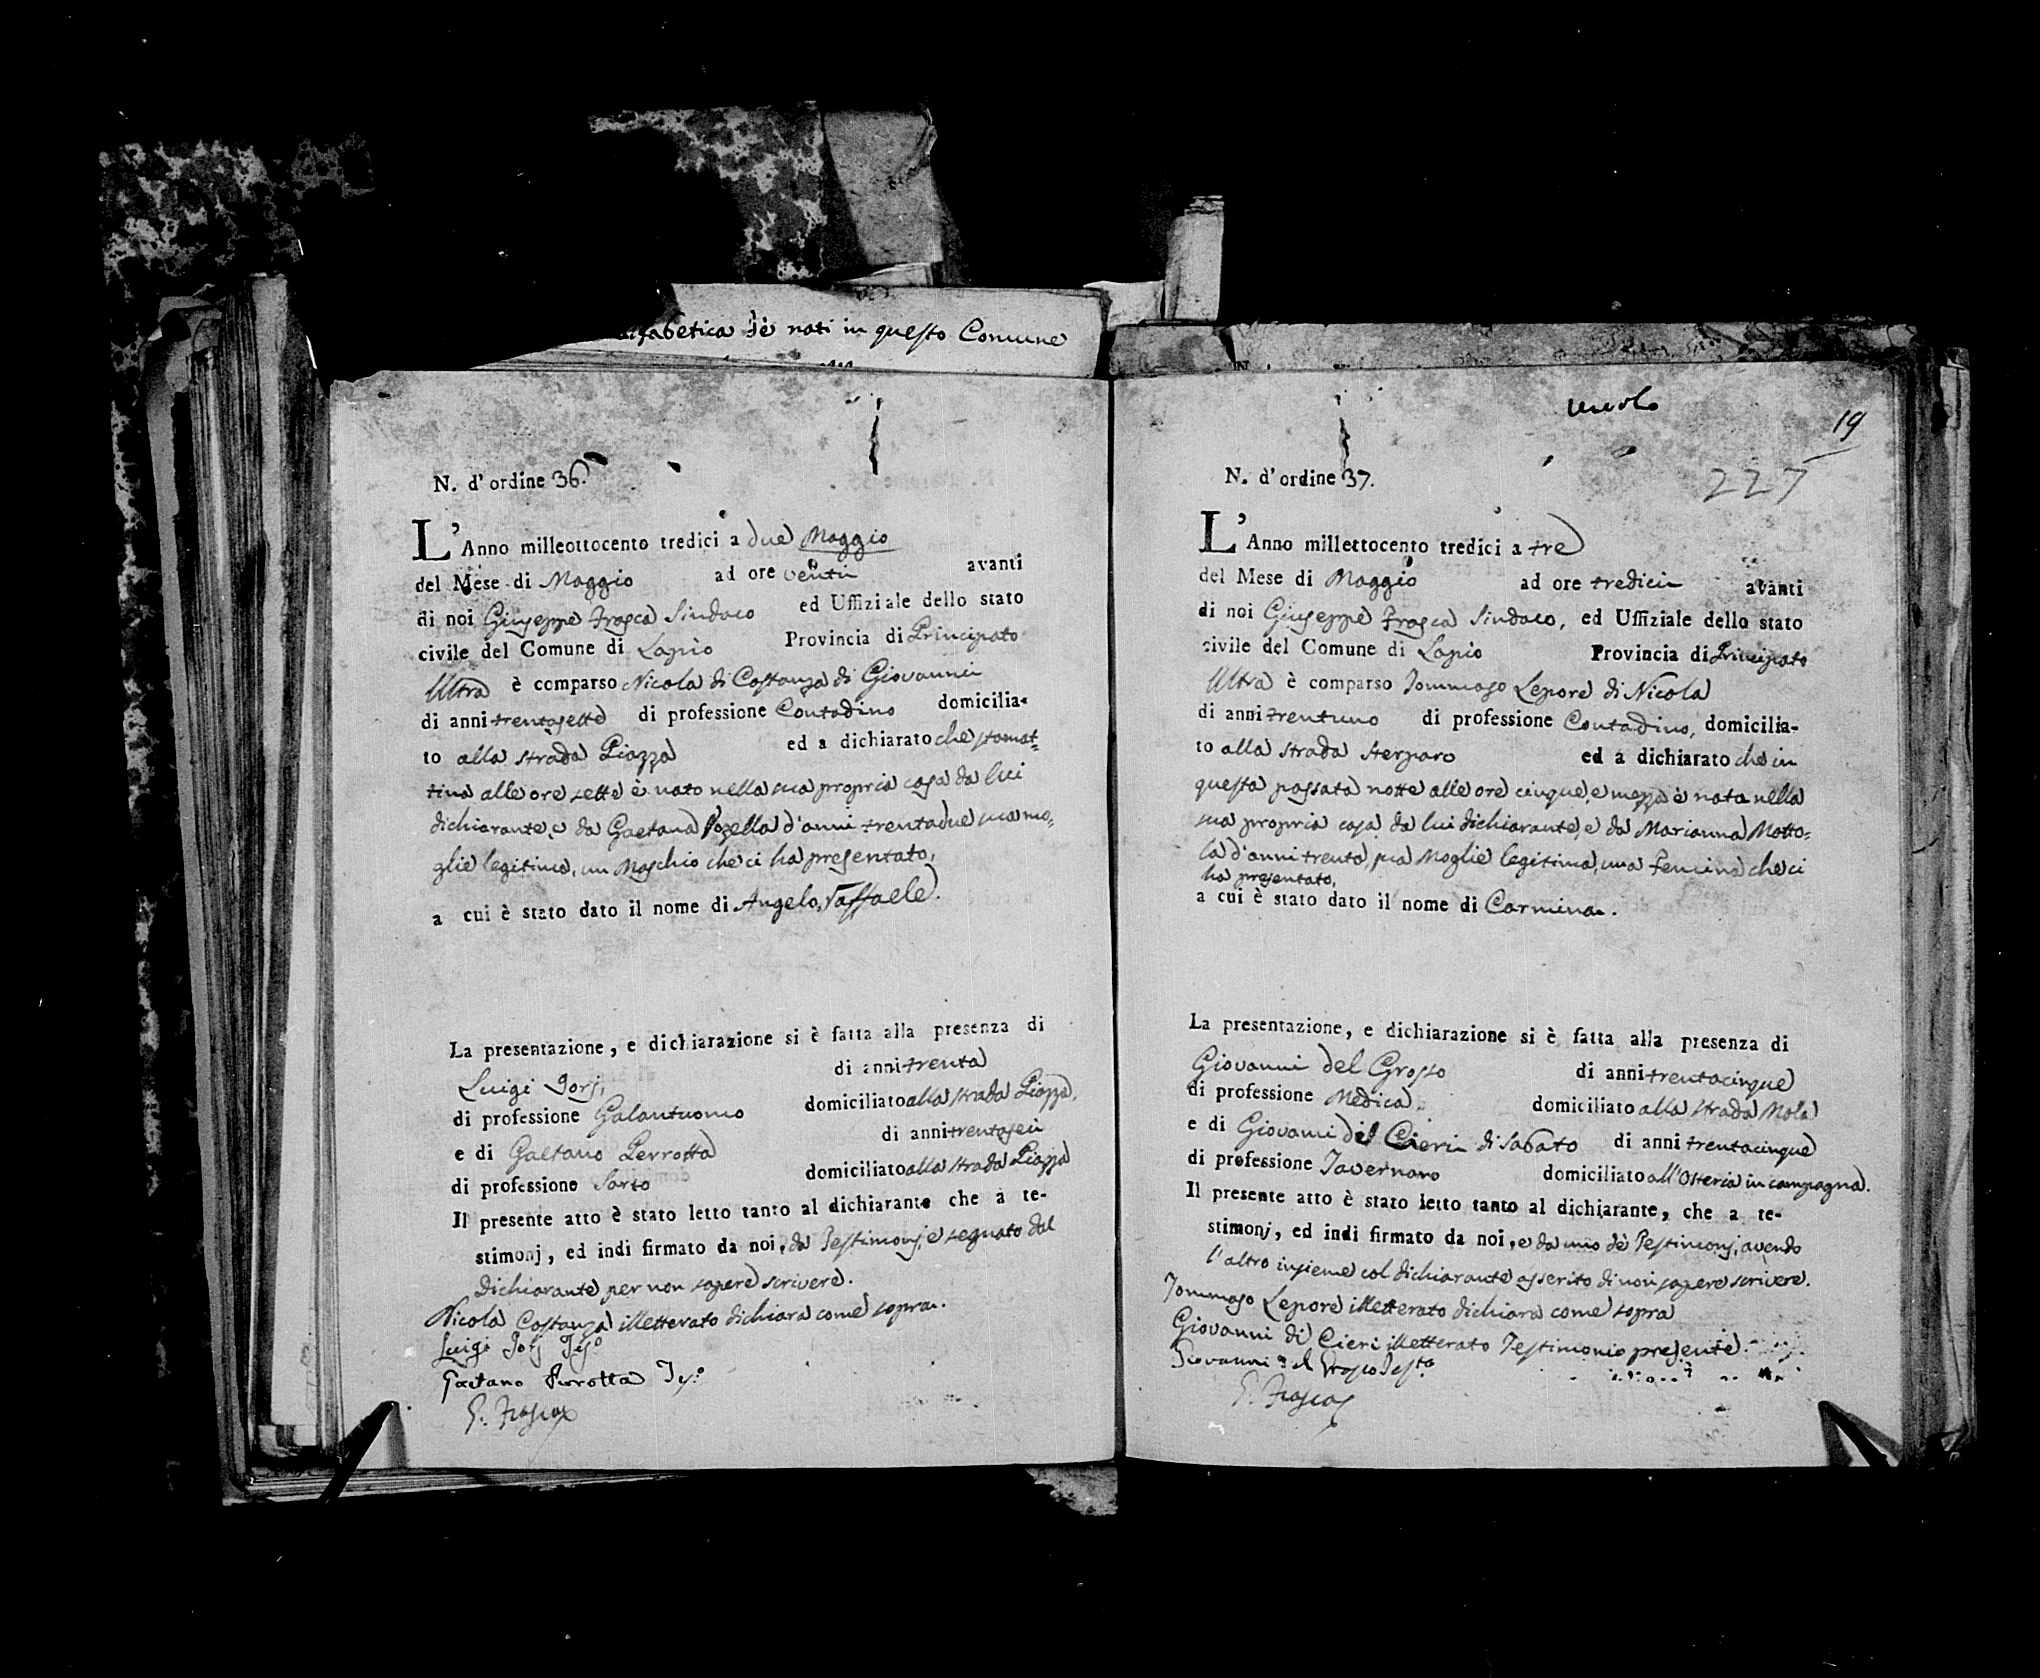 alfabetica dè nati in questo Comune
N. d' ordine 36.
L' Anno milleottocento tredici a due Maggio
del Mese di Maggio ad ore venti avanti
di noi Giuseppe Frasca Sindaco ed Uffiziale dello stato
civile del Comune di Lapio Provincia di Principato
Ultra è comparso Nicola di Costanza di Giovanni
di anni trentasette di professione Contadino domicilia-
to alla strada Piazza ed a dichiarato che stamat-
tina alle ore sette è nato nella sua propria casa da lui
dichiarante, e da Gaetana d'anni trentadue sua mo-
glie legitima, un Maschio che ci ha presentato,
a cui è stato dato il nome di Angelo, Raffaele.
La presentazione, e dichiarazione si è fatta alla presenza di
Luigi di anni trenta
di professione Galantuomo domiciliato alla strada Piazza,
e di Gaetano Perrotta di anni trentasei
di professione Sarto domiciliato alla strada Piazza
Il presente atto è stato letto tanto al dichiarante che a te-
stimonj, ed indi firmato da noi, da Testimonj, e segnato dal
Dichiarante per non sapere scrivere.
Nicola Costanza illetterato dichiara come sopra.
Luigi
Gaetano Perrotta Tes.º
G. Frasca
19
227
N. d' ordine 37.
L' Anno millettocento tredici a tre
del Mese di Maggio ad ore tredici avanti
di noi Giuseppe Frasca Sindaco, ed Uffiziale dello stato
civile del Comune di Lapio Provincia di Principato
Ultra è comparso Tommaso Lepore di Nicola
di anni trentuno di professione Contadino, domicilia-
to alla strada Sterparo ed a dichiarato che in
questa passata notte alle ore cinque, e mezza è nata nella
sua propria casa da lui dichiarante, e da Marianna Motto-
la d'anni trenta, sua Moglie legitima, una Femina che ci
ha presentato,
a cui è stato dato il nome di Carmina.
La presentazione, e dichiarazione si è fatta alla presenza di
Giovanni del Grosso di anni trentacinque
di professione Medica domiciliato alla strada Mola
e di Giovanni di Cieri di Sabato di anni trentacinque
di professione Tavernaro domiciliato all'Osteria in campagna.
Il presente atto è stato letto tanto al dichiarante, che a te-
stimonj, ed indi firmato da noi, e da uno dè Testimonj, avendo
l'altro insieme col dichiarante asserito di non sapere scrivere.
Tommaso Lepore illetterato dichiara come sopra
Giovanni di Cieri illetterato Testimonio presente
Giovanni del Grosso Test.º
G. Frasca